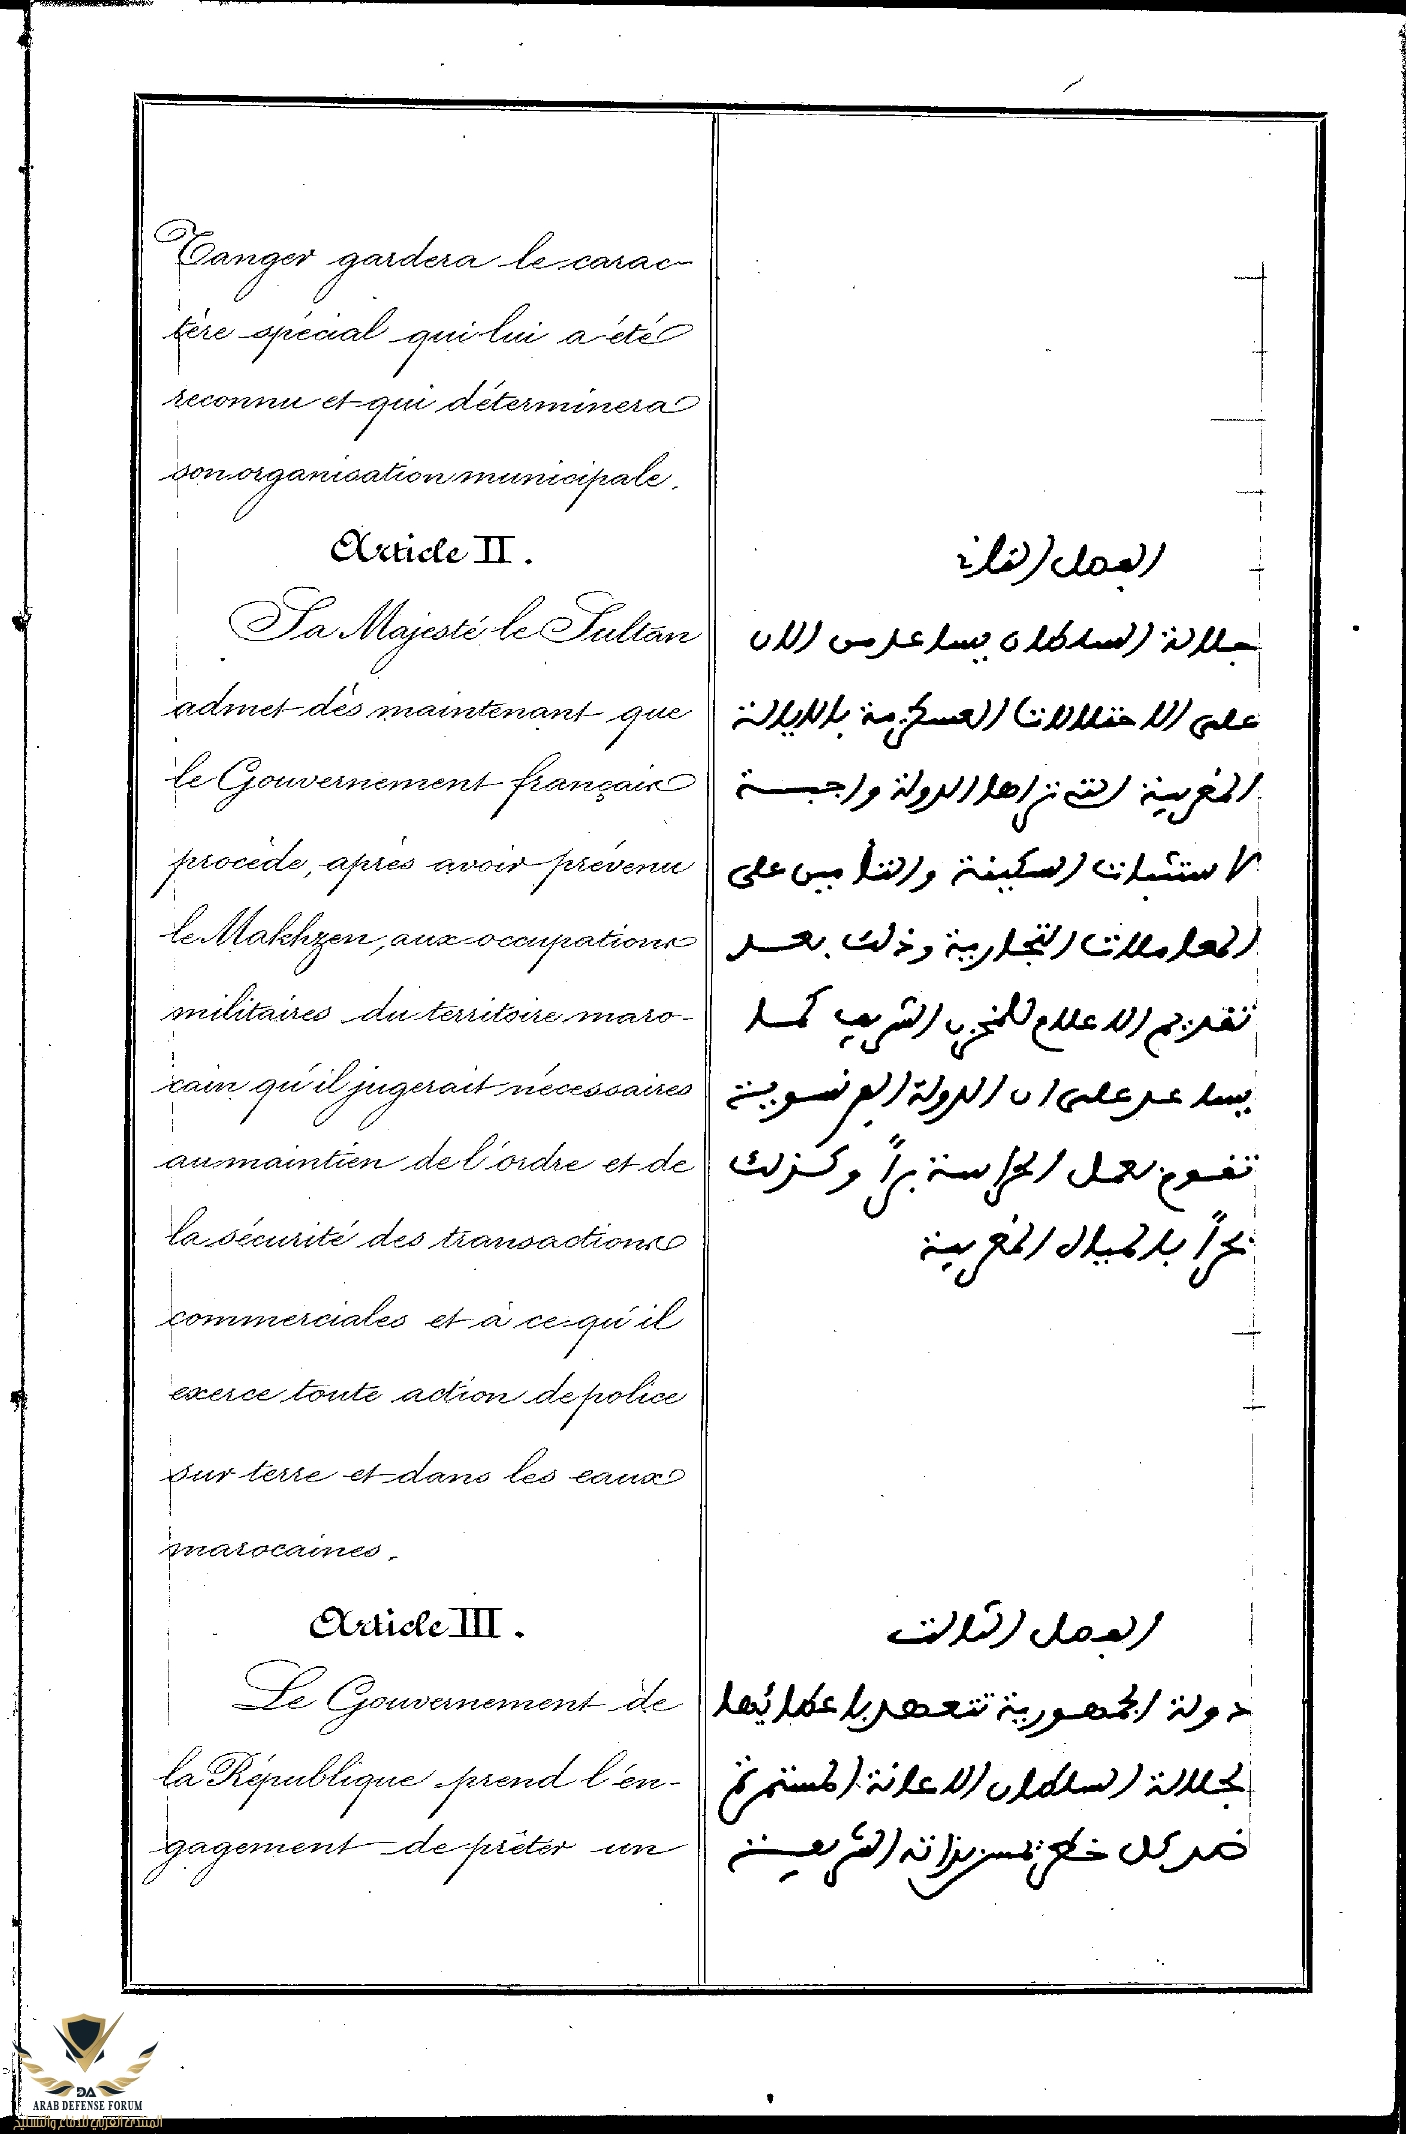 Tanger gardera le carac-
tère spécial qui lui a été
reconnu et qui déterminera
son organisation municipale.
Article II.
Sa Majesté le Sultan
admet dès maintenant que
le Gouvernement français
procède, après avoir prévenu
le Makhzen, aux occupations
militaires du territoire maro-
cain qu'il jugerait nécessaires
au maintien de l'ordre et de
la sécurité des transactions
commerciales et à ce qu'il
exerce toute action de police
sur terre et dans les eaux
marocaines.
Article III.
Le Gouvernement de
la République prend l'en-
gagement de prêter un
الفصل الثاني
جلالة السلطان يساعد من الان
على الاحتلالات العسكرية بالايالة
المغربية التي تراها الدولة واجبة
لاستتبات السكينة والتأمين على
المعاملات التجارية وذلك بعد
تقديم الاعلام للمخزن الشريف كما
يساعد على ان الدولة الفرنسوية
تقوم بعمل الحراسة براً وكذلك
بحراً بالمياه المغربية
الفصل الثالث
دولة الجمهورية تتعهد باعطائها
لجلالة السلطان الاعانة المستمرة
ضد كل خطر يمس بذاته الشريفة
ARAB DEFENSE FORUM
المنتدى العربي للدفاع والتسليح